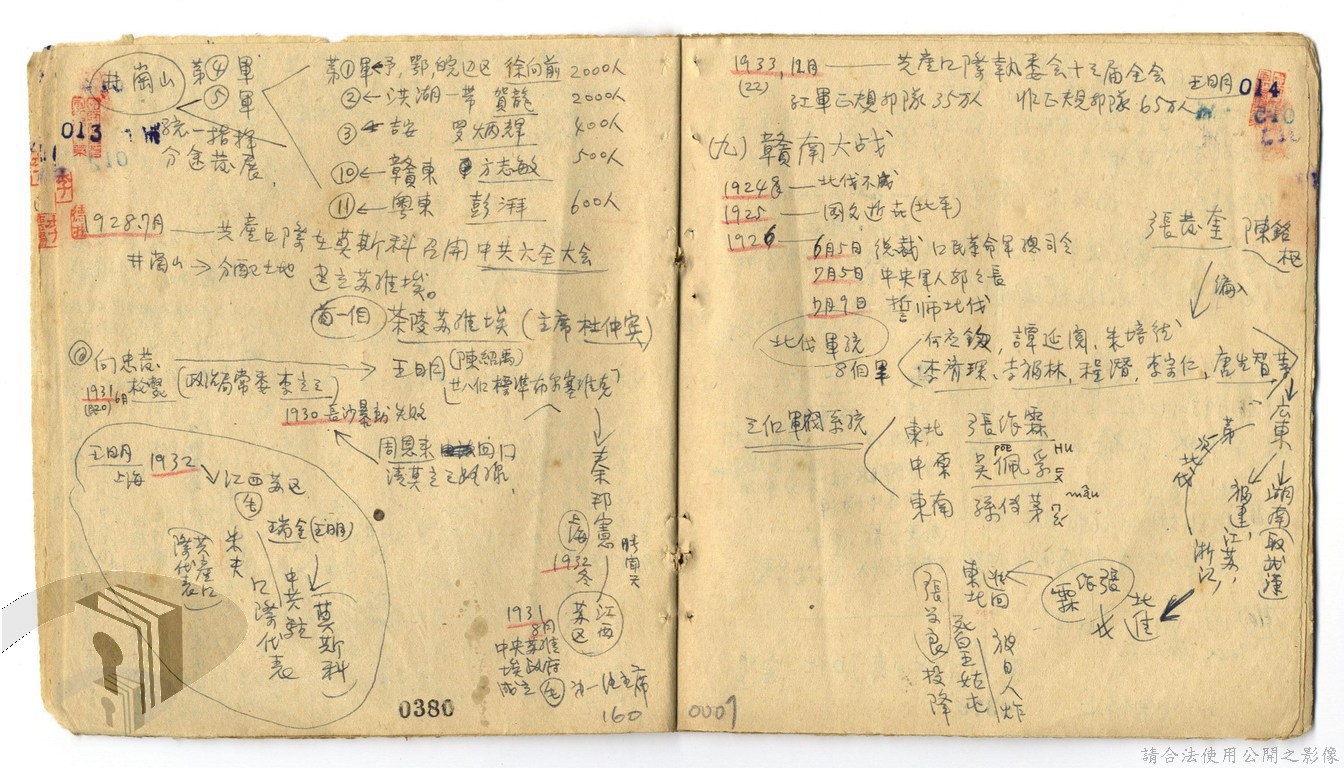 井崗山
第④軍
⑤軍
統一指揮
分途發展.
013
第①軍←予,鄂,皖边区 徐向前 2000人
②←洪湖一帶 賀龍 2000人
③←吉安 罗炳輝 400人
⑩←贛東 方志敏 500人
⑪←粵東 彭湃 600人
1928.7月——共產口際在莫斯科召開中共六全大会
井崗山→分配土地
建立苏維埃。
首一個 茶陵苏維埃(主席杜仲宾)
向忠发
1931
6月
(政治局常委 李立三)
王明(陳紹禹)
廿八亇標準布尔塞維克
1930 長沙暴動失敗
周恩来 回口
清莫立三路線
王明
上海
1932
江西苏区
瑞金(王明)
朱夫
共產口際代表
中共駐口際代表
(莫斯科)
秦邦憲
上海
1932
冬
江西苏区
1931
8月
中央苏維
埃政府
成立 第一任主席
0380
160
1933,12月——共產口際執委会十三届全会
(22)
王明
014
紅軍正規部隊35万人 非正規部隊65万人
(九)贛南大战
1924年—北伐不成
1925——國父逝去(北平)
1926——6月5日 總裁 口民革命軍總司令
7月5日 中央軍人部部長
7月9日 誓师北伐
張发奎 陳銘枢
編入
北伐軍統
8個軍
何应欽,譚延闓,朱培德
李濟琛,李福林,程潛,李宗仁,唐生智等
三個軍閥系統
東北 張作霖
中原 吳佩孚
東南 孫传芳
poe
HU
mâu
広東
湖南取武漢
福建,江苏,
浙江,
第一次北伐
北進
張作霖
北
東北
張学良投降
死皇姑屯
被日人炸
0007
請合法使用公開之影像